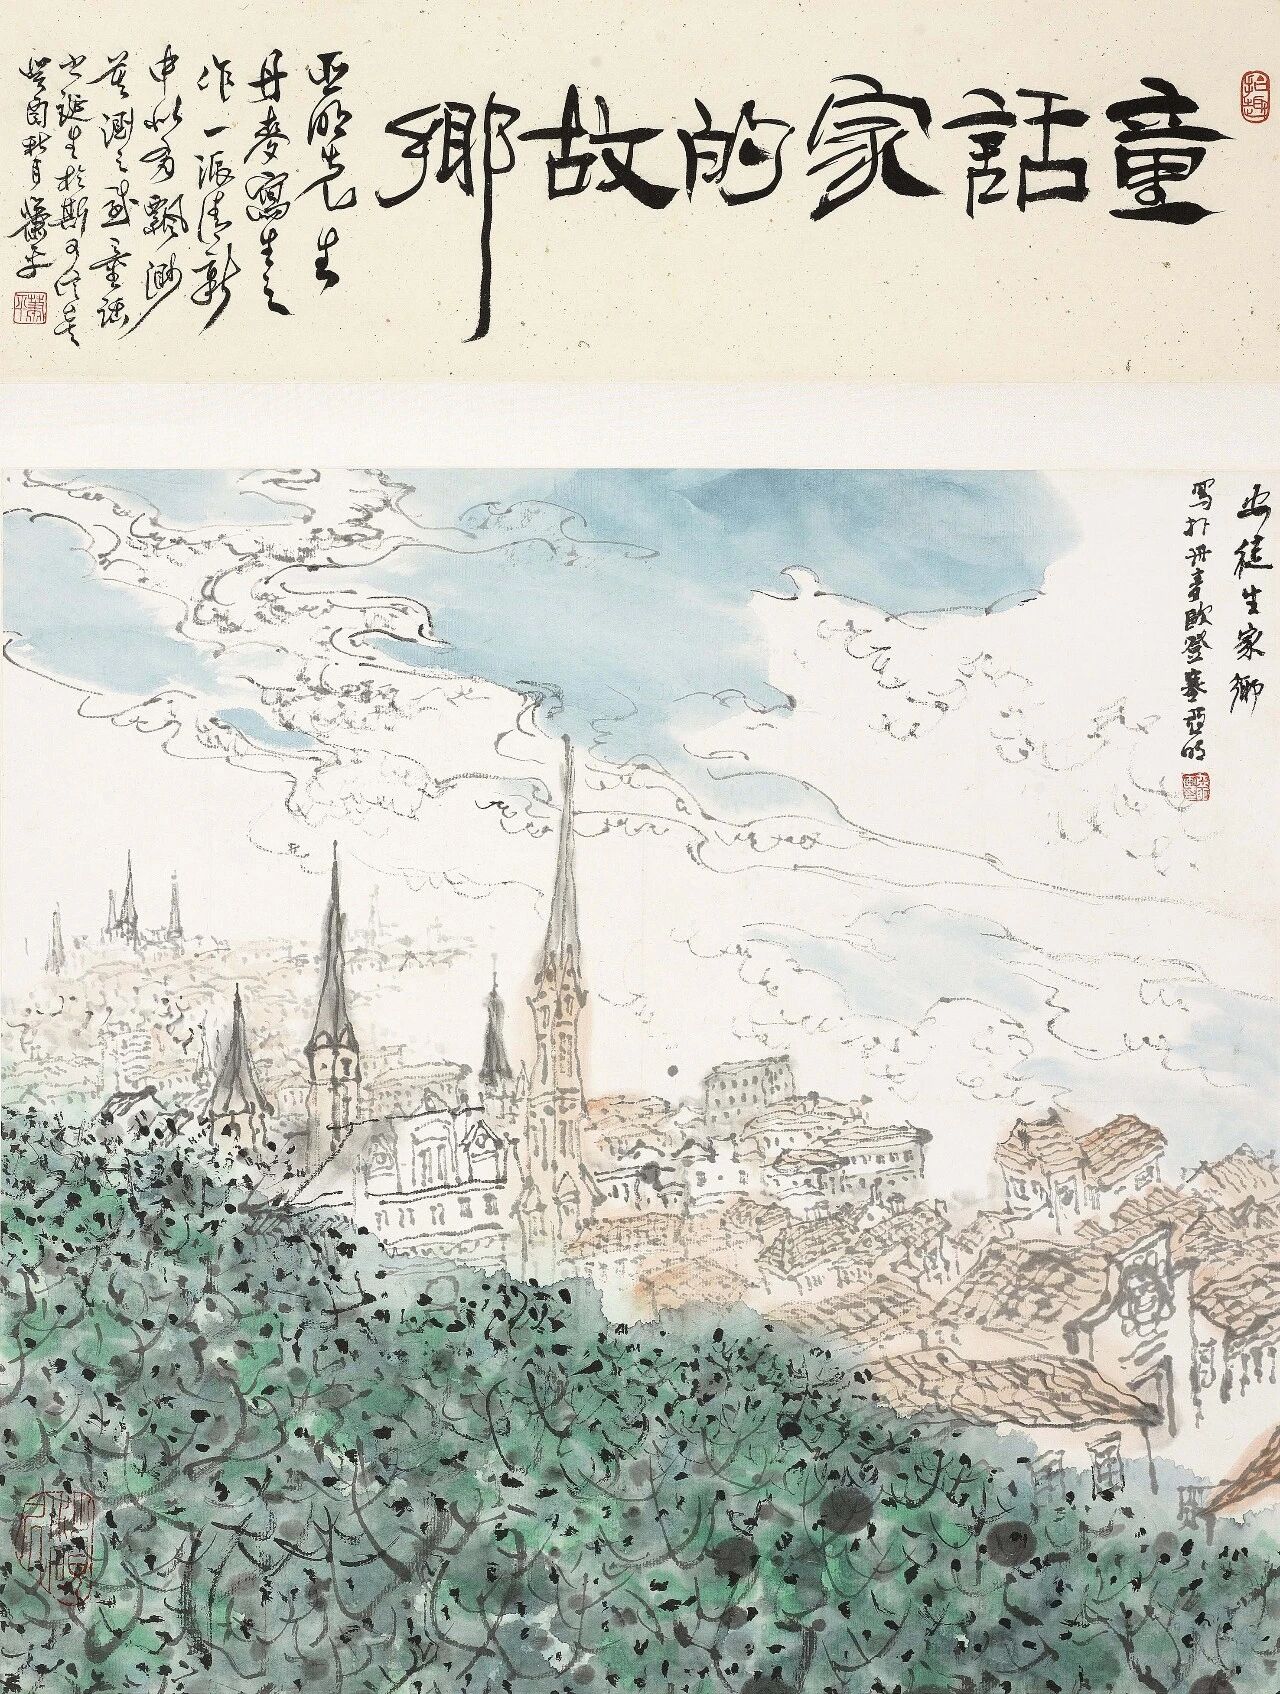 童話家的故鄉
亞明先生
丹麥寫生之
作一派清新
中似有飄渺
莫測之感童話
之誕生於斯可信矣
癸酉秋月蕭平
安徒生家鄉
寫於丹麥歐登塞亞明